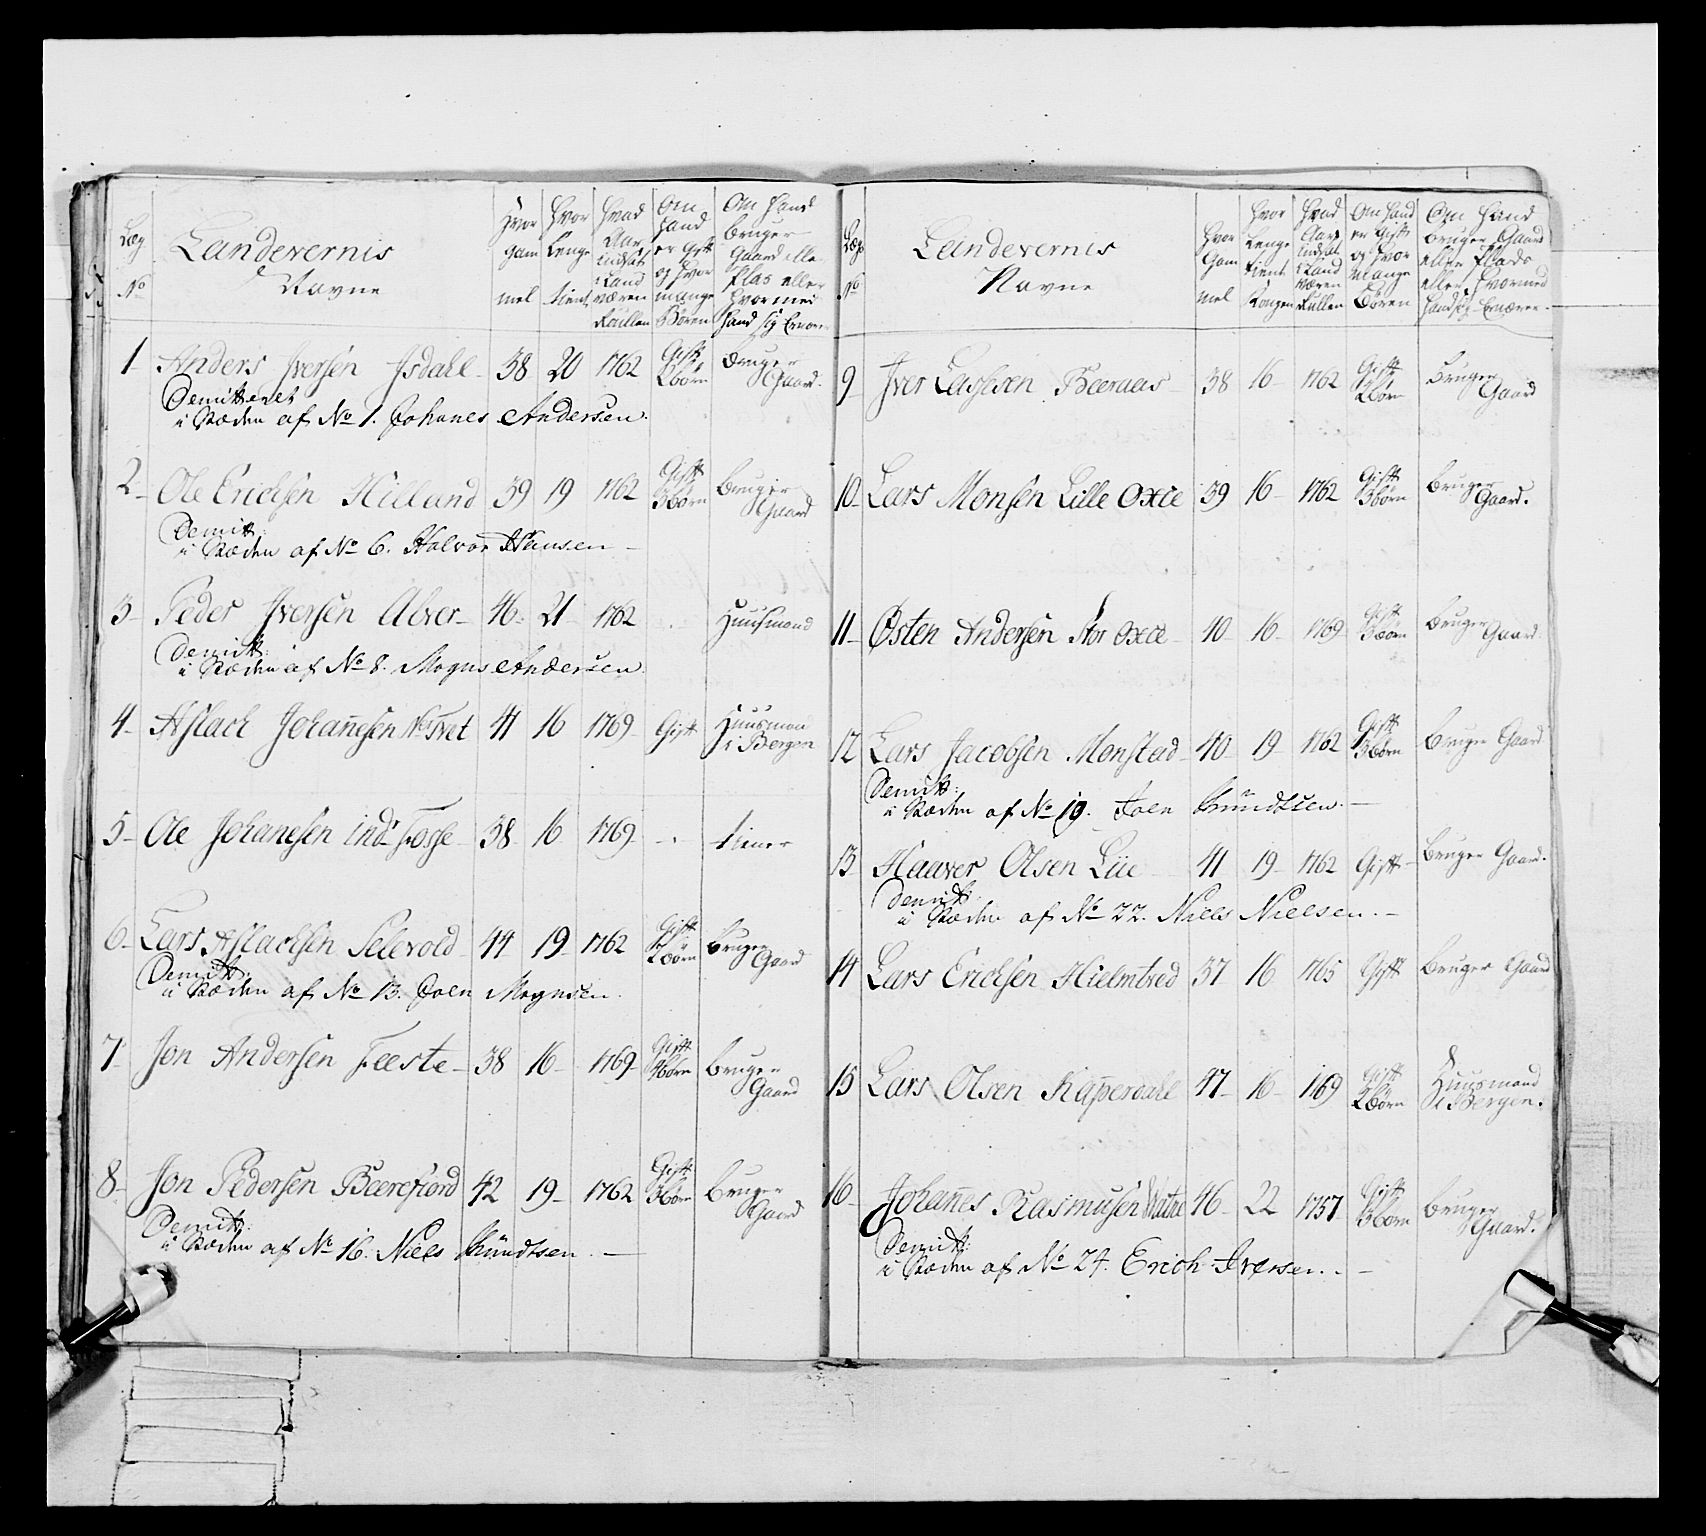 Læg
No
Landevernis
Navne
Hvor
gam
mel
Hvor
Lenge
tient
Hvad
Aar
indsat
i Land
væren
Rullen
Om
hand
er Gift
og hvor
mange
Børen
Om hand
bruger
Gaard elle
Plas eller
hvor med
hand sig Ernærer
1 Anders Iversen Isdahl 38 20 1762 Gift 2 börn bruger Gaard.
Demitteret
i Stæden af No 1. Johanes Andersen.
2 Ole Erichsen Hilland 39 19 1762 Gift 3 börn bruger Gaard
Demitt:
i Stæden af No 6. Halvor Hansen
3 Peder Iversen Alver 46 21 1762 Huusmand
Demitt:
i Stæden af No 8. Mogns Andersen
4 Aslach Johannesen Nestvet 41 16 1769 Gift Huusman i Bergen
5 Ole Johanesen indr Fosse 38 16 1769 tiener
6 Lars Aslachsen Seievold 44 19 1762 Gift 2 börn bruger Gaard
Demitt:
i Stæden af No 13. Joen Mognsen.
7 Jon Andersen Feeste 38 16 1769 Gift börn bruger Gaard
8 Jon Pedersen Beerefiord 42 19 1762 Gift 3 börn bruger Gaard
Demitt:
i Stæden af No 16. Niels Knudtsen.
Læg
No
Landevernis
Navne
Hvor
Gam
mel
Hvor
Lenge
tient
Kongen
Hvad
Aar
indsat
i Land
væren
Rullen
Om hand
er Gift
og hvor
mange
Børen
Om Hand
bruger Gaard
eller Plads
eller Hvormed
Hand sig Ernærer
9 Iver Lasesen Beeraas 38 16 1762 Gift 2 börn bruger Gaard
10 Lars Monsen Lille Oxie 39 16 1762 Gift 3 börn bruger Gaard.
11 Østen Andersen Stor Oxie 40 16 1769 Gift 3 börn bruger Gaard.
12 Lars Jacobsen Monstad 40 19 1762 Gift 3 börn bruger Gaard
Demitt:
i Stæden af No 19. Joen Knudtsen.
13 Haaver Olsen Lüe 41 19 1762 Gift bruger Gaard.
Demitt:
i Stæden af No 22. Niels Nielsen.
14 Lars Erichsen Hielmtved 37 16 1765 Gift bruger Gaard
15 Lars Olsen Kapperdahl 47 16 1769 Gift 2 börn Huusmand i Bergen.
16 Johannes Rasmusen Watne 46 22 1757 Gift 3 börn bruger Gaard.
Demitt:
i Stæden af No 24. Erich Iversen.